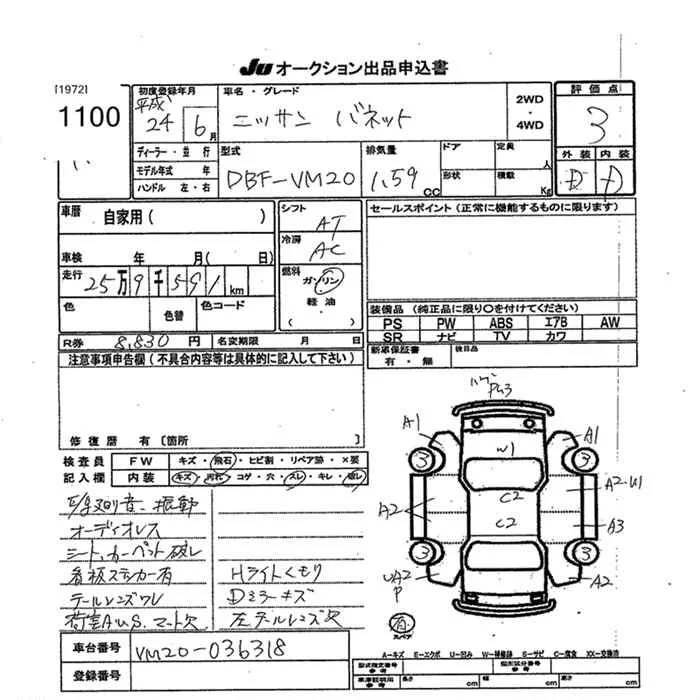 Ju オークション出品申込書
[1972]
1100
初度登録年月
平成
24 6月
車名・グレード
ニッサン バネット
2WD
・
4WD
評価点
3
外装 内装
D D
ディーラー・並行
モデル年式 年
ハンドル 左・右
型式
DBF-VM20
排気量
1.59 CC
ドア
形状
定員
人
積載
Kg
車歴 自家用( )
車検 年 月( 日)
走行 25万9千591km
色
色替
色コード
シフト
AT
冷房
AC
燃料
ガソリン
軽油
( )
セールスポイント(正常に機能するものに限ります)
装備品(純正品に限り○を付けてください)
PS PW ABS エアB AW
SR ナビ TV カワ
R券 8,830 円 名変期限 月 日
新車保証書
有・無
後日品
注意事項申告欄(不具合内容等は具体的に記入して下さい)
修復歴 有〔箇所
検査員
記入欄
FW キズ・飛石・ヒビ割・リペア跡・×要
内装 キズ・汚れ・コゲ・穴・スレ・キレ・破レ
オーディオレス
シート、カーペット破レ
看板ステッカー有
テールレンズワレ
Hライトくもり
Dミラーキズ
左テールレンズ欠
A1
W1
A1
3
3
A2
C2
C2
A2・U1
A3
3
3
UA2
P
A2
有
スペア
A=キズ E=エクボ U=凹み W=補修跡 S=サビ C=腐食 XX=交換済
車台番号 VM20-036318
登録番号
型式指定番号
参考
類別区分番号
参考
長さ cm
幅 cm
高さ cm